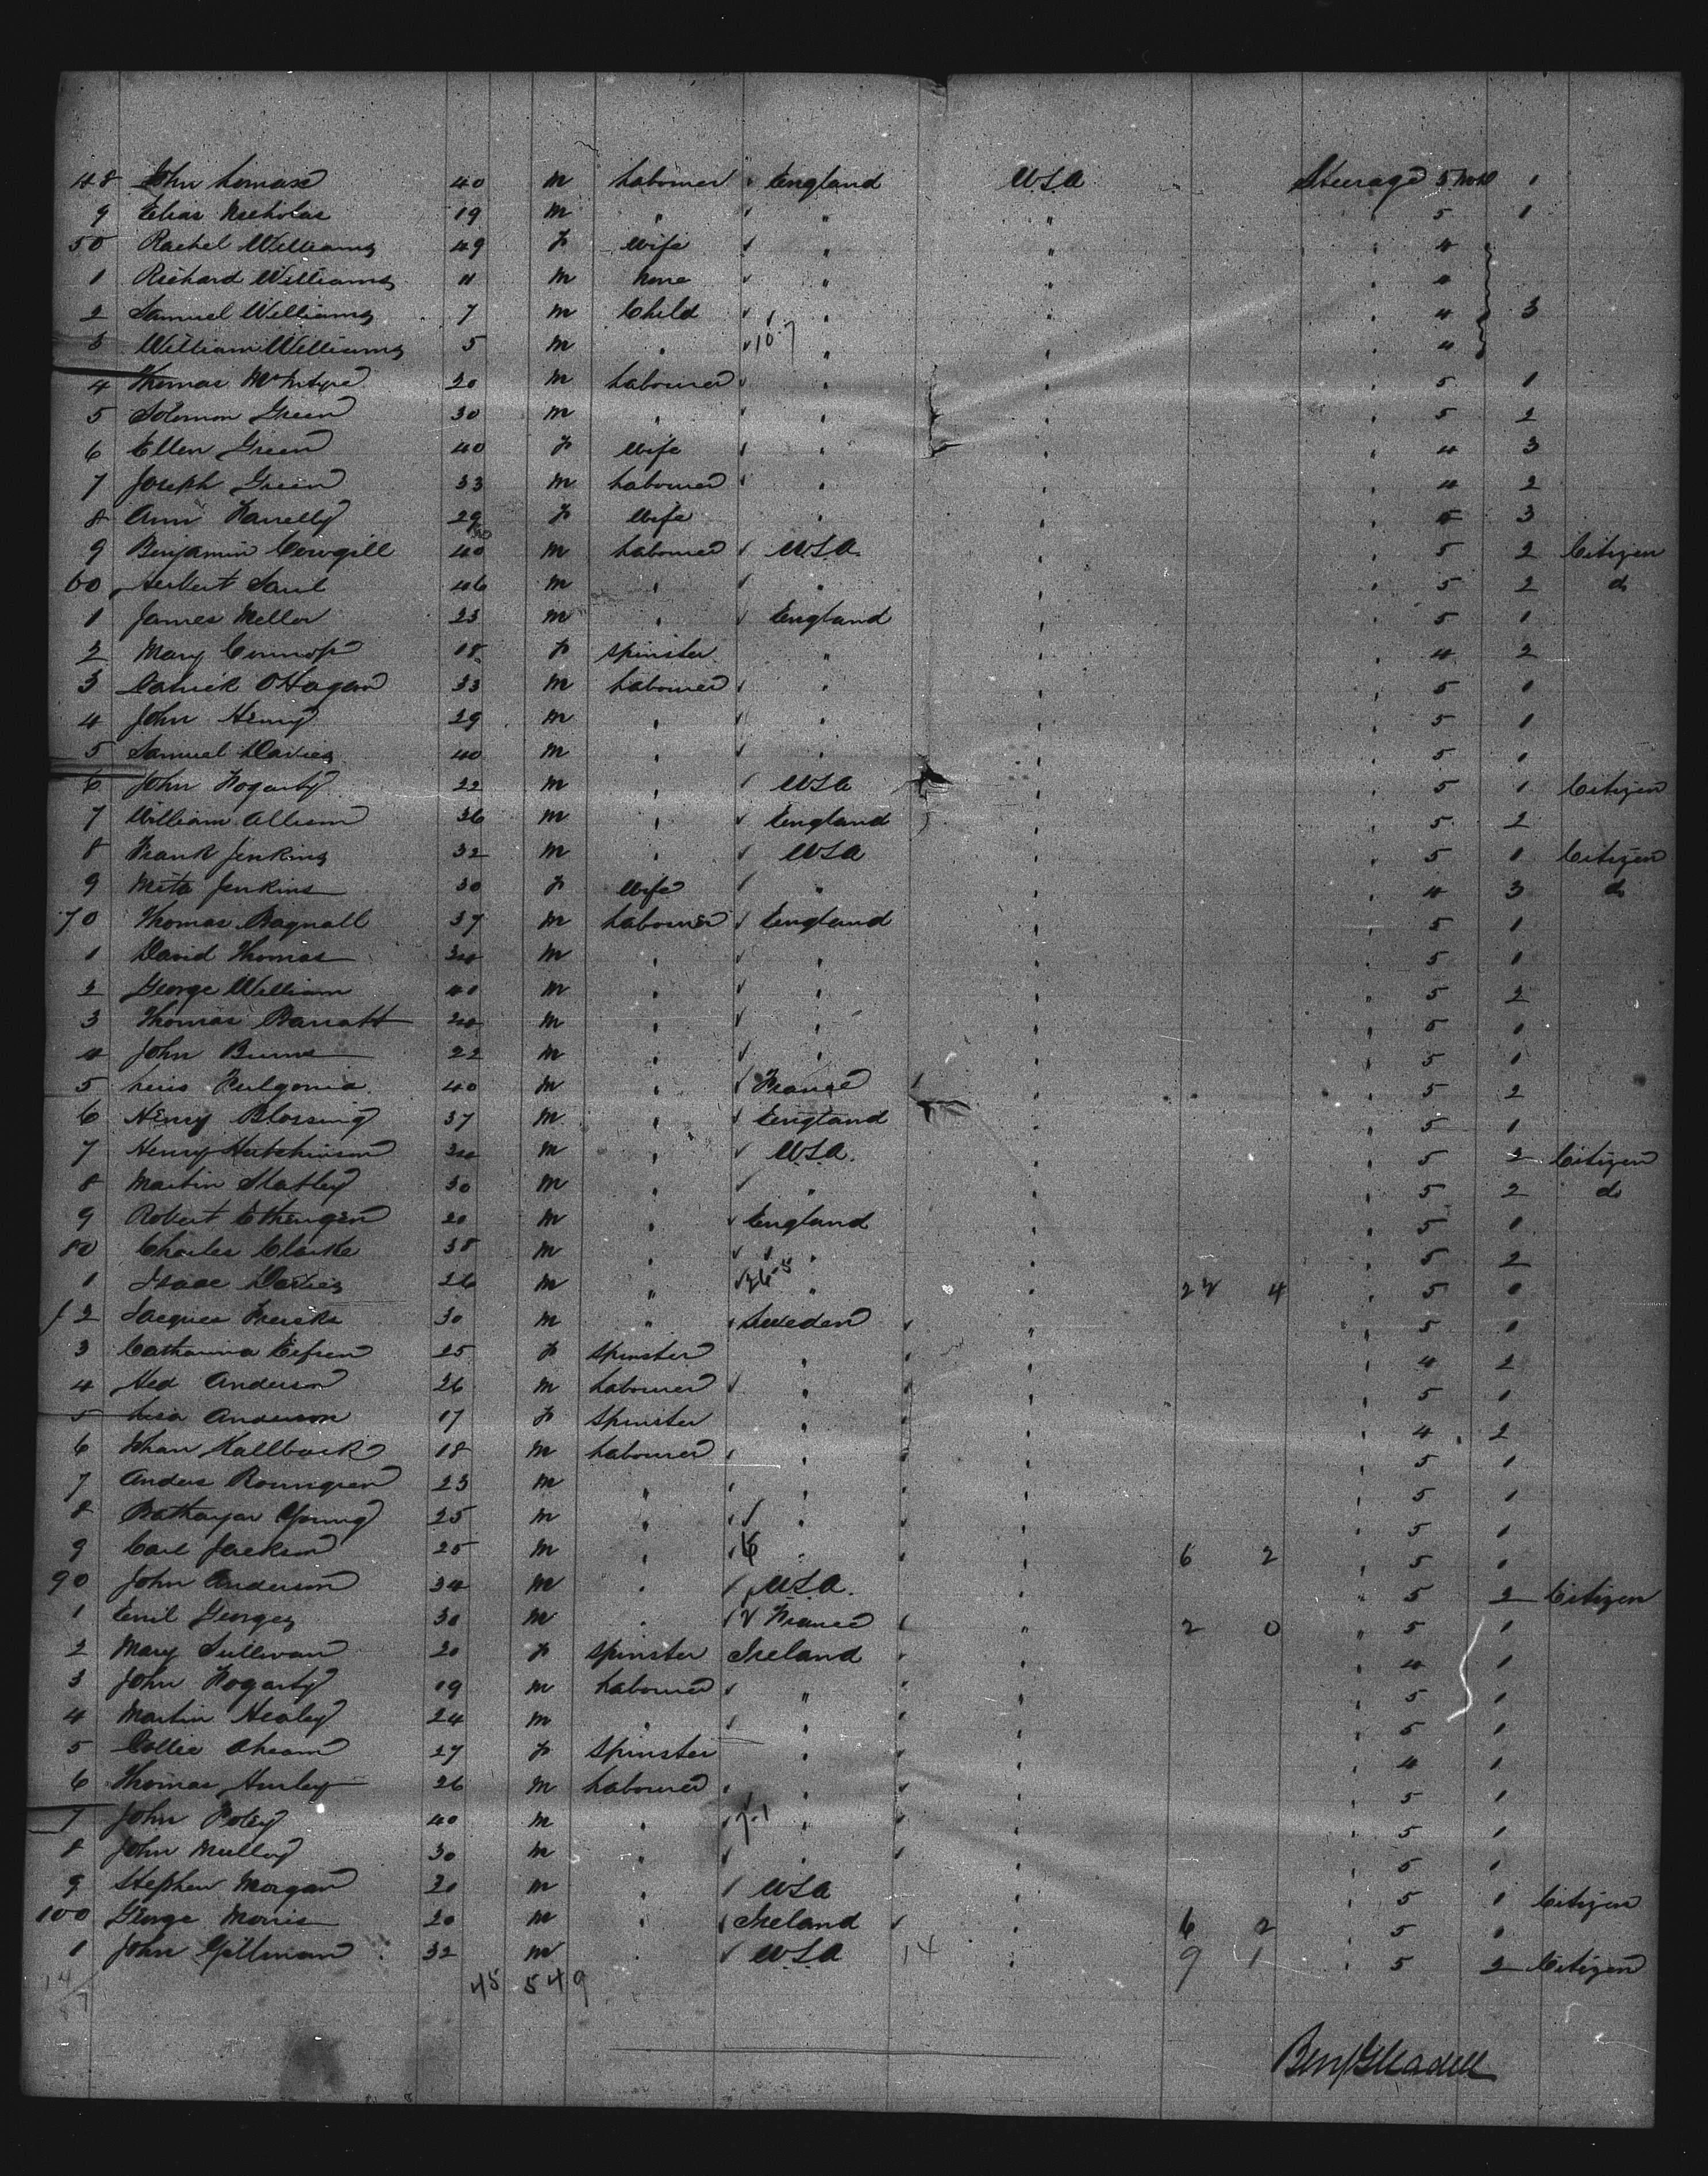 48 John Lomax 40 m Labourer England USA Steerage 5 1
9 Elias Nicholas 19 m " " " " 5 1
50 Rachel Williams 49 f Wife " " " 4
1 Richard Williams 11 m None " " " 4
2 Samuel Williams 7 m Child " " " 4 3
3 William Williams 5 m " 10 7 " " " 4
4 Thomas McIntyre 20 m Labourer " " " 5 1
5 Solomon Green 30 m " " " " 5 2
6 Ellen Green 40 f Wife " " " 4 3
7 Joseph Green 33 m Labourer " " " 4 2
8 Ann Farrelly 29 f Wife " " " 3
9 Benjamin Cowgill 40 m Labourer USA " " 5 2 Citizen
60 Herbert Saul 46 m " " " " 5 2 do
1 James Mellor 23 m " England " " 5 1
2 Mary 18 f Spinster " " " 4 2
3 Patrick O'Hagan 33 m Labourer " " " 5 1
4 John Henry 29 m " " " " 5 1
5 Samuel Davies 40 m " " " " 5 1
6 John Fogarty 22 m " USA " " 5 1 Citizen
7 William 36 m " England " " 5 2
8 Frank Jenkins 32 m " USA " " 5 1 Citizen
9 Meta Jenkins 30 f Wife " " " 4 3 do
70 Thomas Bagnall 37 m Labourer England " " 5 1
1 David Thomas m " " " " 5 1
2 George William 40 m " " " " 5 2
3 Thomas Barratt m " " " " 5 1
4 John Burns 22 m " " " " 5 1
5 40 m " France " " 5 2
6 Henry Blossing 37 m " England " " 5 1
7 Henry Hutchinson m " USA. " " 5 2 Citizen
8 Martin 30 m " " " " 5 2 do
9 Robert 20 m " England " " 5 1
80 Charles Clarke 38 m " " " " 5 2
1 Isaac Davies 26 m " " " 22 4 " 5 0
2 Jacques 30 m " Sweden " " 5 1
3 Catharina 25 f Spinster " " " 4 2
4 Anderson 26 m Labourer " " " 5 1
5 Anderson 17 f Spinster " " " 4 2
6 Johan Kallback 18 m Labourer " " " 5 1
7 Anders 23 m " " " " 5 1
8 Young 25 m " " " " 5 1
9 Carl Jackson 25 m " " " 6 2 " 5 1
90 John Anderson 34 m " USA. " " 5 2 Citizen
1 Emil Georges 30 m " France " 2 0 " 5 1
2 Mary Sullivan 20 f Spinster Ireland " " 4 1
3 John Fogarty 19 m Labourer " " " 5 1
4 Martin Healey 24 m " " " " 5 1
5 27 f Spinster " " " 4 1
6 Thomas Hurley 26 m Labourer " " " 5 1
7 John 40 m " 7.1 " " " 5 1
8 John 30 m " " " " 5 1
9 Stephen Morgan m " USA " " 5 1 Citizen
100 George Morris 20 m " Ireland " 6 2 " 5 1
1 John Gillman 32 m " USA 14 " 9 1 " 5 2 Citizen
14 57 45 549